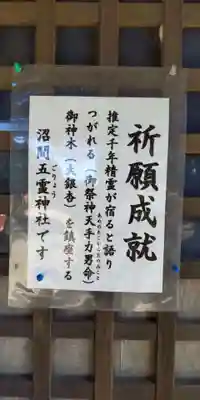 祈願成就
推定千年精霊が宿ると語り
つがれる(御祭神天手力男命)
御神木(大銀杏)を鎮座する
沼間五霊神社です
ごりょう